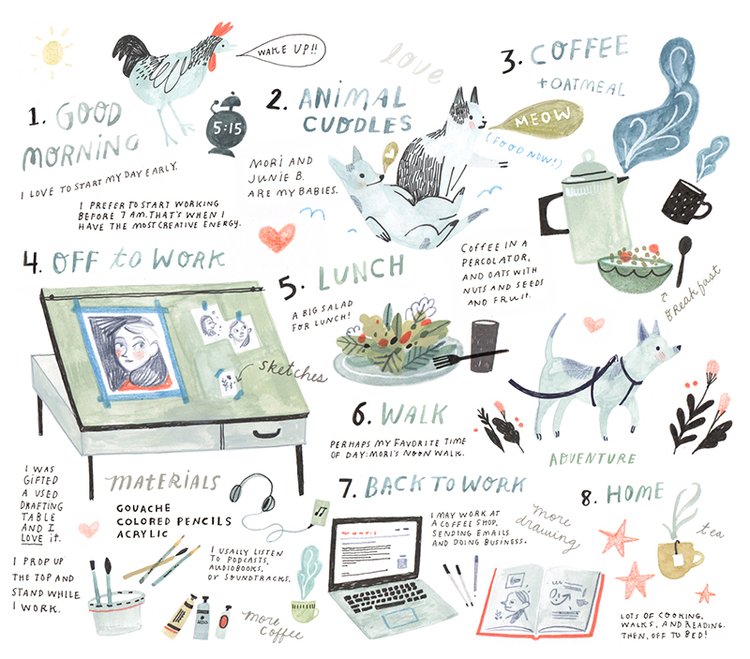 WAKE UP!!
1. GOOD
MORNING
5:15
I LOVE TO START MY DAY EARLY.
I PREFER TO START WORKING
BEFORE 7 AM. THAT'S WHEN I
HAVE THE MOST CREATIVE ENERGY.
2. ANIMAL
CUDDLES
love
MEOW
(FOOD NOW!)
MORI AND
JUNIE B.
ARE MY BABIES.
3. COFFEE
+ OATMEAL
COFFEE IN A
PERCOLATOR,
AND OATS WITH
NUTS AND SEEDS
AND FRUIT.
breakfast
4. OFF to WORK
sketches
I WAS
GIFTED
A USED
DRAFTING
TABLE
AND I
LOVE it.
I PROP UP
THE TOP AND
STAND WHILE
I WORK.
MATERIALS
GOUACHE
COLORED PENCILS
ACRYLIC
I USALLY LISTEN
TO PODCASTS,
AUDIOBOOKS,
OR SOUNDTRACKS.
more
coffee
5. LUNCH
A BIG SALAD
FOR LUNCH!
6. WALK
PERHAPS MY FAVORITE TIME
OF DAY: MORI'S NOON WALK.
ADVENTURE
7. BACK TO WORK
I MAY WORK AT
A COFFEE SHOP,
SENDING EMAILS
AND DOING BUSINESS.
more
drawing
8. HOME
tea
LOTS OF COOKING,
WALKS, AND READING.
THEN, OFF TO BED!